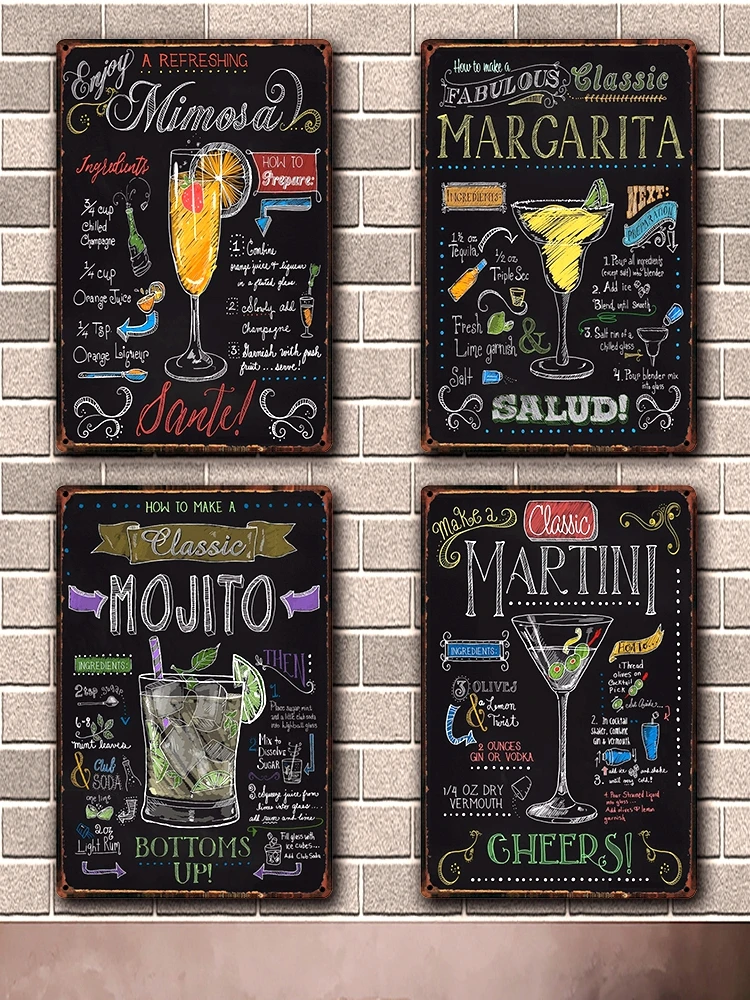 Enjoy A REFRESHING
Mimosa
Ingredients
3/4 cup
Chilled
Champagne
1/4 cup
Orange Juice
1/4 Tsp
Orange Liqueur
HOW TO
Prepare:
1: Combine
orange juice & liqueur
in a fluted glass
2: Slowly add
Champagne
3: Garnish with fresh
fruit... serve!
Sante!
How to make a
FABULOUS Classic
MARGARITA
INGREDIENTS:
1½ oz
Tequila
½ oz
Triple Sec
Fresh
Lime garnish
&
Salt
NEXT:
PREPARATION
1. Pour all ingredients
(except salt) into blender
2. Add ice
Blend, until Smooth
3. Salt rim of a
Chilled glass
4. Pour blender mix
into glass
SALUD!
HOW TO MAKE A
Classic
MOJITO
INGREDIENTS:
2 tsp sugar
6-8
mint leaves
& Club
SODA
one lime
2 oz
Light Rum
THEN
1.
Place sugar, mint
and a little club soda
into highball glass
2 Mix to
Dissolve
SUGAR
3. squeeze juice from
lime into glass...
add rum and lime
Fill glass with
ice cubes...
Add Club Soda
BOTTOMS
UP!
Make a Classic
MARTINI
INGREDIENTS
3 OLIVES
& a Lemon
Twist
2 OUNCES
GIN OR VODKA
1/4 OZ DRY
VERMOUTH
1 Thread
olives on
Cocktail
Pick
Set Aside
2. In Cocktail
Shaker, combine
Gin & Vermouth
add ice and shake
3. until very cold!
4. Pour Strained Liquid
into glass...
Add olives & lemon
garnish
CHEERS!